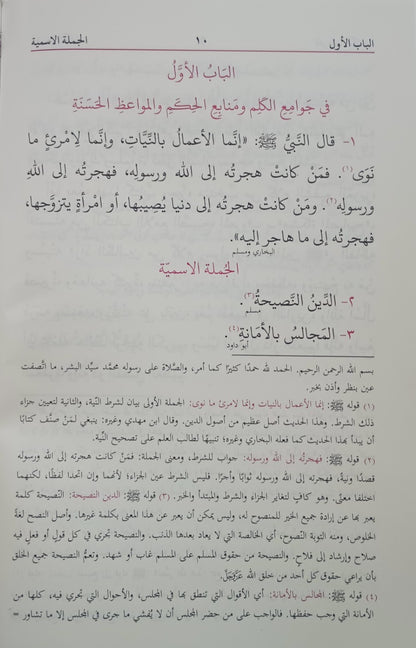 الباب الأول ١٠ الجملة الاسمية
البَابُ الأَوَّلُ
في جَوامِعِ الكَلِمِ ومَنابِعِ الحِكَمِ والمواعظِ الحَسَنَةِ
١- قال النَّبيُّ ﷺ: «إنَّما الأعمالُ بالنِّيَّاتِ، وإنَّما لِامْرِئٍ ما
نَوَى(١). فمَنْ كانتْ هجرتُه إلى الله ورسولِه، فهجرتُه إلى اللهِ
ورسولِه(٢). ومَنْ كانتْ هجرتُه إلى دنيا يُصِيبُها، أو امْرأةٍ يتزوَّجها،
فهجرتُه إلى ما هاجر إليه».
البخاري ومسلم
الجُملة الاسميّة
٢- الدَّينُ النَّصيحةُ(٣).
مسلم
٣- المَجالسُ بالأمَانةِ(٤).
أبو داود
بسم الله الرحمن الرحيم. الحمد لله حمدًا كثيرًا كما أمر، والصَّلاة على رسوله محمَّد سيِّد البشر، ما اتَّصفت
عين بنظر وأذن بخبر.
(١) قوله ﷺ: إنما الأعمال بالنيات وإنما لامرئ ما نوى: الجملة الأولى بيان لشرط النيَّة، والثانية لتعيين جزاء
ذلك الشرط. وهذا الحديث أصل عظيم من أصول الدين. وقال ابن مهدي وغيره: ينبغي لمَنْ صنَّف كتابًا
أن يبدأ بهذا الحديث كما فعله البخاري وغيره؛ تنبيهًا لطالب العلم على تصحيح النيَّة.
(٢) قوله ﷺ: فهجرتُه إلى الله ورسوله: جواب للشرط، ومعنى الجملة: فمَنْ كانت هجرته إلى الله ورسوله
قصدًا ونيةً، فهجرته إلى الله ورسوله ثوابًا وأجرًا. فليس الشرط عين الجزاء؛ لأنهما وإن اتحدا لفظًا، لكنهما
اختلفا معنًى. وهو كافٍ لتغاير الجزاء والشرط والمبتدأ والخبر. (٣) قوله ﷺ: الدين النصيحة: النَّصيحة كلمة
يعبر بها عن إرادة جميع الخير للمنصوح له، وليس يمكن أن يعبر عن هذا المعنى بكلمة غيرها. وأصل النصح لغةً
الخلوص، ومنه التوبة النَّصوح، أي الخالصة التي لا يعاد بعدها الذنب. والنصيحة تجري في كل قول أو فعل فيه
صلاح وإرشاد إلى فلاح. والنصيحة من حقوق المسلم على المسلم غاب أو شهد. وتعمُّ النصيحة جميع الخلق
بأن يراعي حقوق كل أحد من خلق الله عَزَّوَجَلَّ.
(٤) قوله ﷺ: المجالس بالأمانة: أي الأقوال التي تنطق بها في المجلس، والأحوال التي تجري فيه، كلها من
الأمانة التي وجب حفظها. فالواجب على من حضر المجلس أن لا يُفشي ما جرى في المجلس إلا ما تشاور =